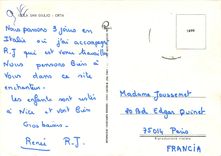 ISOLA SAN GIULIO - ORTA
Nous passons 3 jours en
Italie où j'ai accompagné
R.J. qui est venu travailler
Nous pensons bien à
Vous dans ce site
enchanteur.
Les enfants sont restés
à Nice et vont bien
Gros baisers
Renée R.J.
Madame Jousserret
70 Bd Edgar Quinet
75014 Paris
FRANCIA